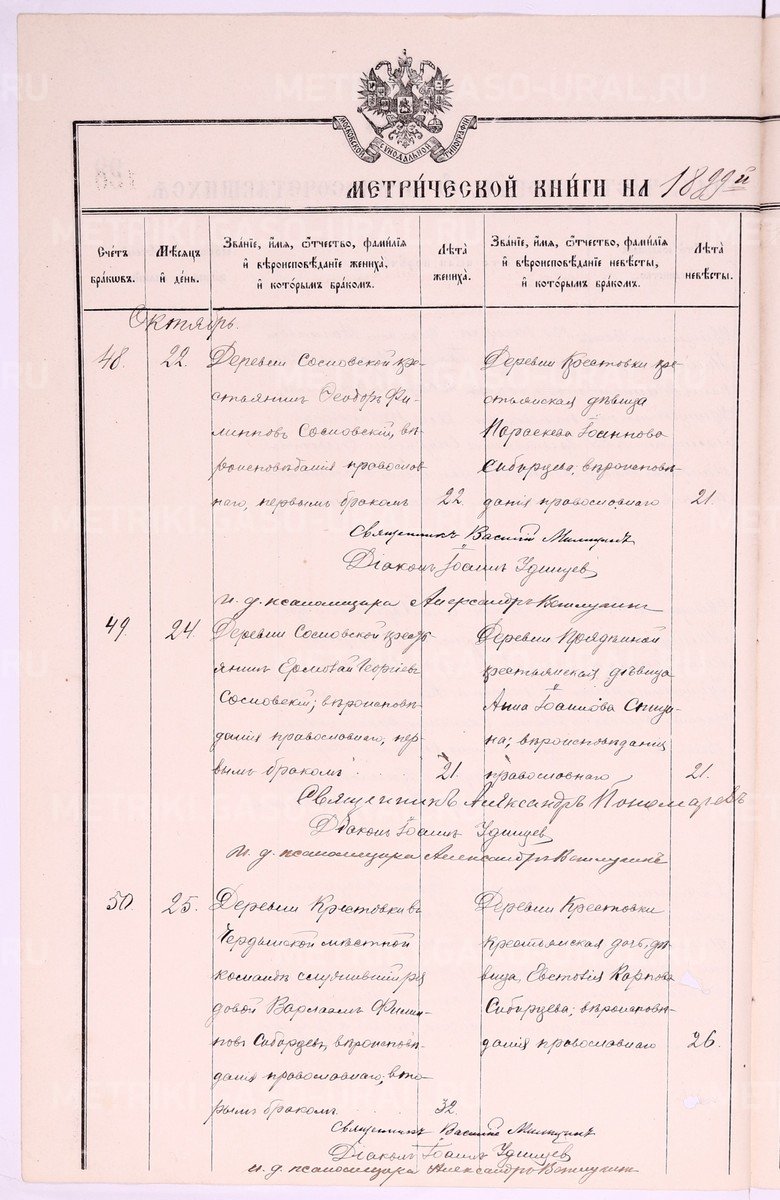 МОСКОВСКОЙ СѴНОДАЛЬНОЙ ТИПОГРАФІИ
МЕТРИ́ЧЕСКОЙ КНИ́ГИ НА 1899й
Сче́тъ бра́кѡвъ.
Мѣ́сѧцъ и҆ де́нь.
Зва́нїе, и҆́мѧ, ѻ҆́тчество, фами́лїѧ и҆ вѣроисповѣ́данїе жениха̀, и҆ кото́рымъ бра́комъ.
Лѣ́та жениха̀.
Зва́нїе, и҆́мѧ, ѻ҆́тчество, фами́лїѧ и҆ вѣроисповѣ́данїе невѣ́сты, и҆ кото́рымъ бра́комъ.
Лѣ́та невѣ́сты.
Октябрь.
48.
22.
Деревни Сосновской кре-
стьянинъ Ѳеодоръ Фи-
липповъ Сосновскій, вѣ-
роисповѣданія православ-
наго, первымъ бракомъ
22.
Деревни Крестовки кре-
стьянская дѣвица
Параскева Іоаннова
Сибирцева, вѣроисповѣ-
данія православнаго
21.
Священникъ Василій
Діаконъ Іоаннъ Удинцев
И. д. псаломщика Александръ
49.
24.
Деревни Сосновской крест-
янинъ Ермолай Георгіевъ
Сосновскій; вѣроисповѣ-
данія православнаго, пер-
вымъ бракомъ
21.
крестьянская дѣвица
Анна Іоаннова Спици-
на; вѣроисповѣданія
православнаго
21.
Священникъ Александръ Пономаревъ
Діаконъ Іоаннъ Удинцев
И. д. псаломщика Александръ
50.
25.
Деревни Крестовки въ
Чердынской мѣстной
командѣ служившій ря
довой Варлаамъ Филип-
повъ Сибирцевъ, вѣроисповѣ-
данія православнаго, вто-
рымъ бракомъ
32.
Деревни Крестовки
крестьянская дочь, дѣ-
вица, Евстолія Карпова
Сибирцева; вѣроисповѣ-
данія православнаго
26.
Священникъ Василій
Діаконъ Іоаннъ Удинцев
И. д. псаломщика Александръ